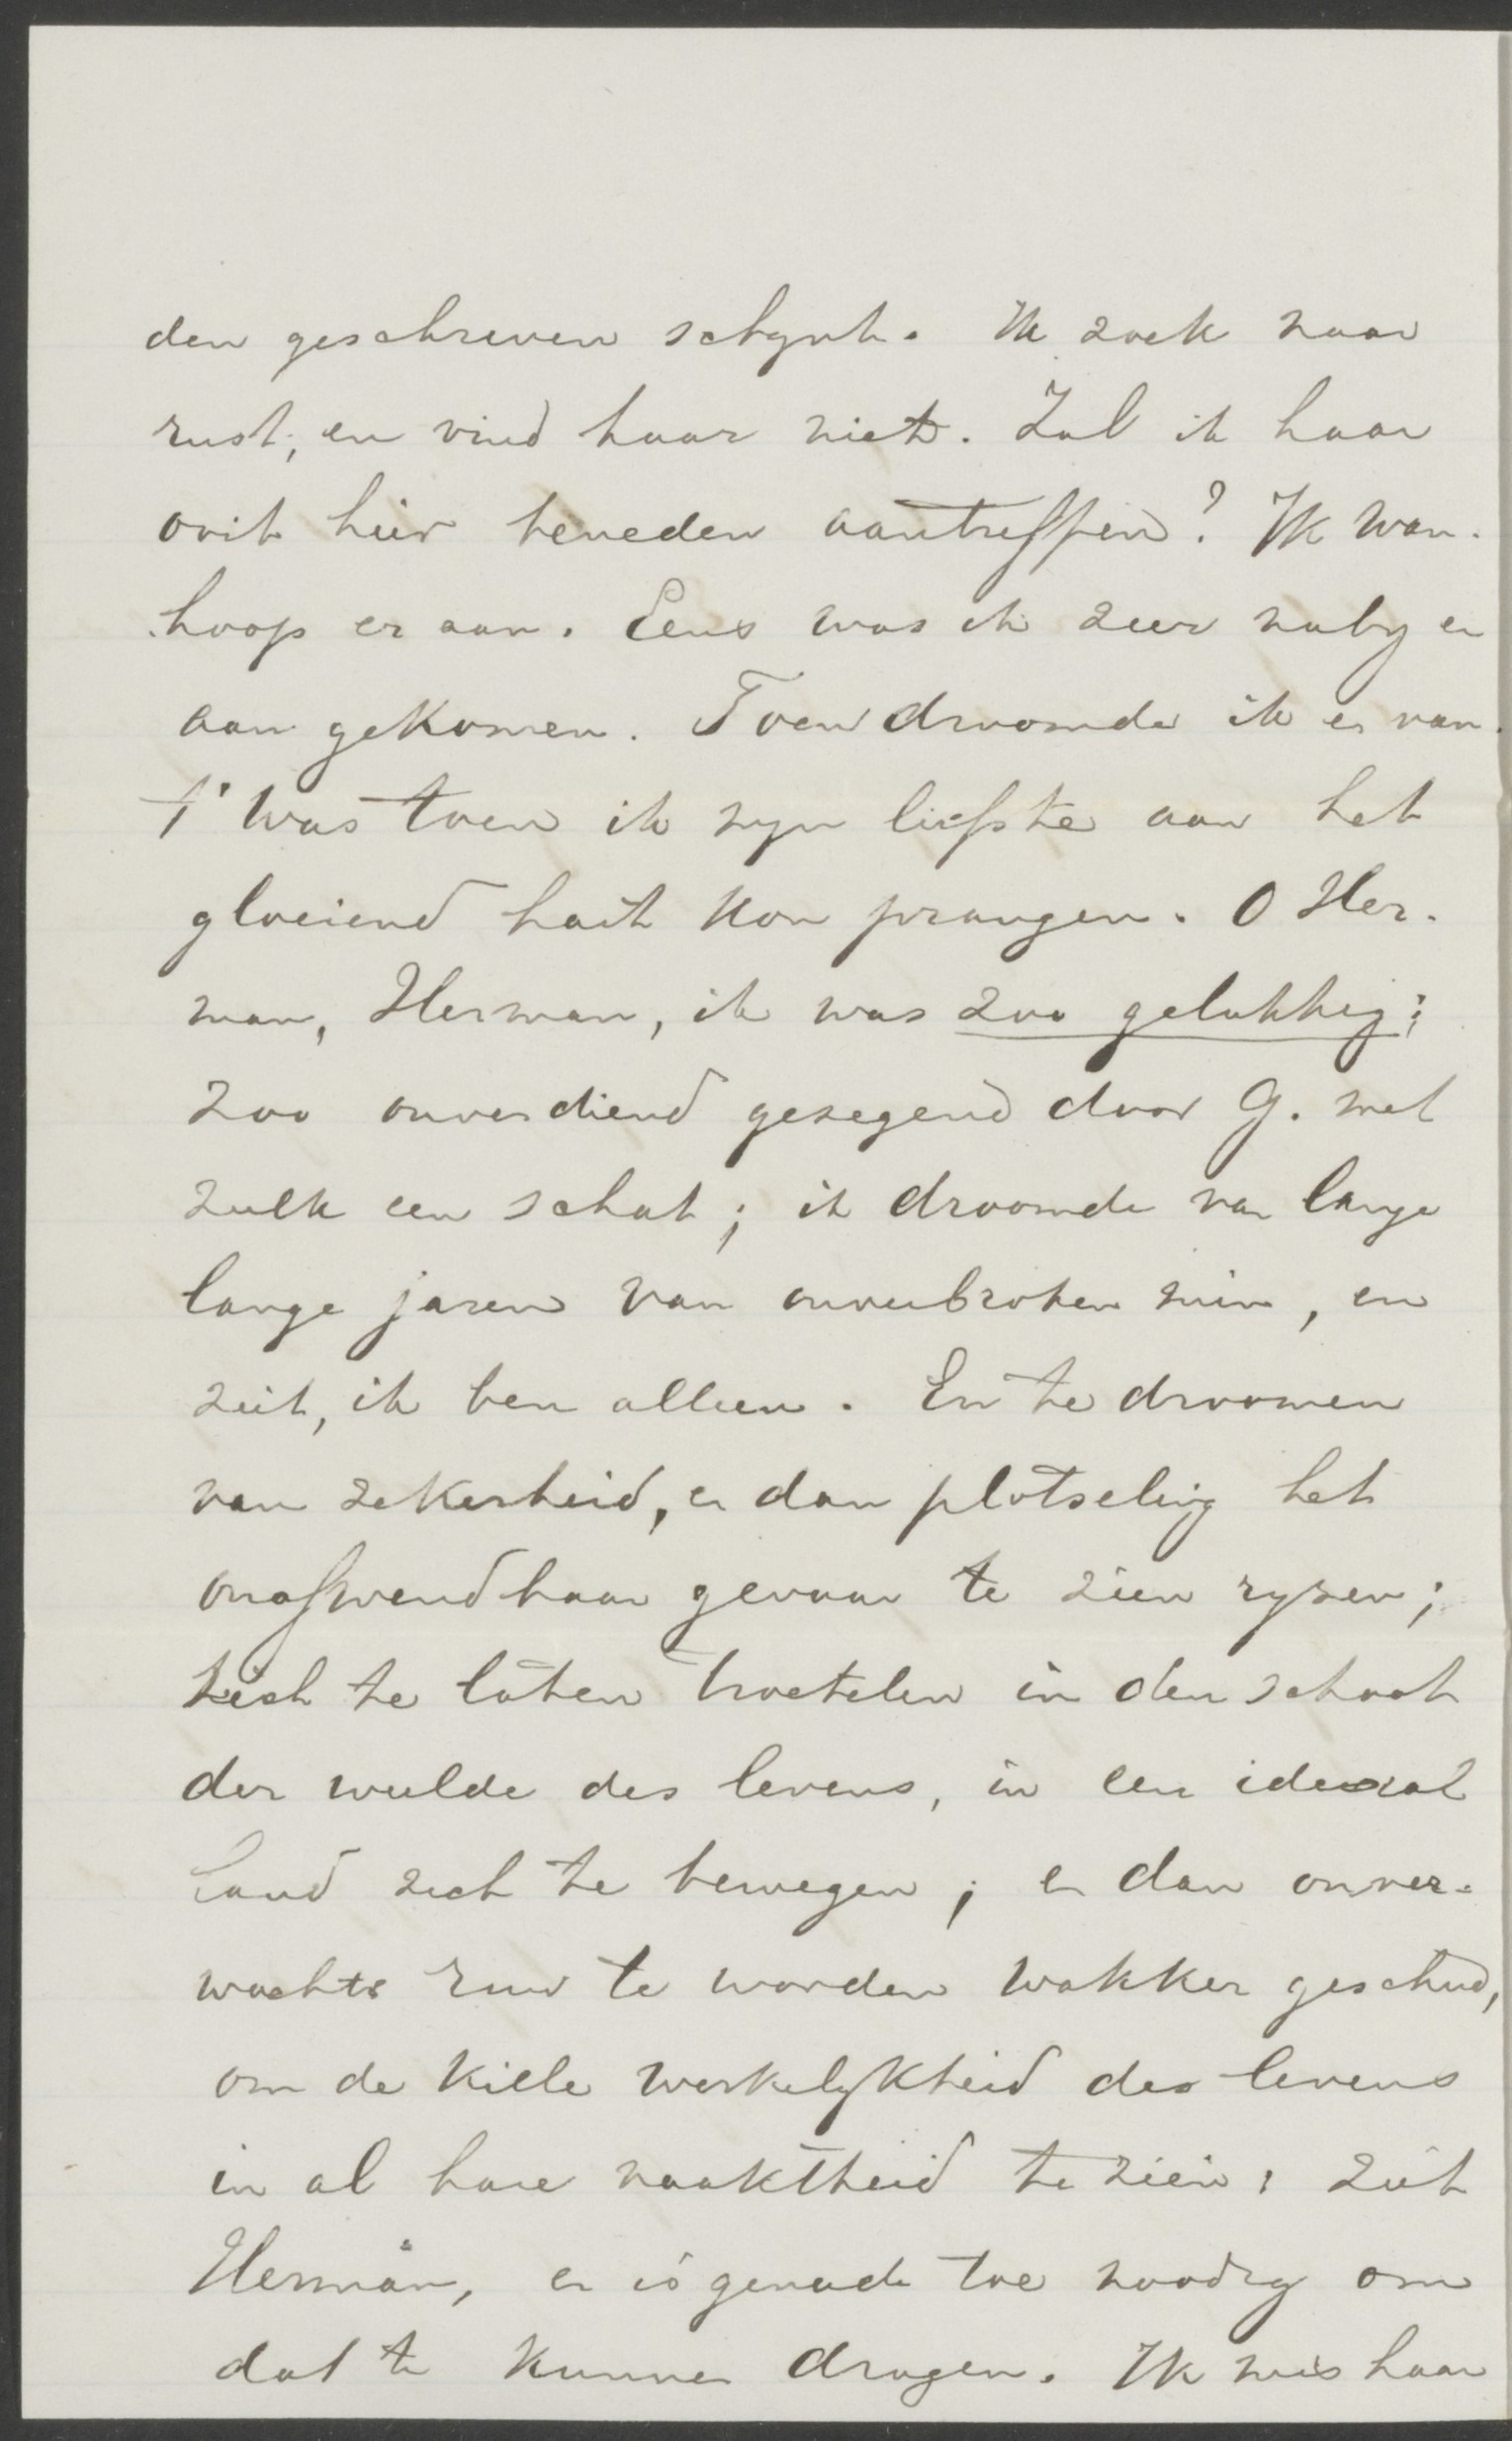 den geschreven schynt. Ik zoek naar
rust, en vind haar niet. Zal ik haar
ooit hier beneden aantreffen? Ik wan-
hoop er aan. Eens was ik zeer naby er
aan gekomen. Toen droomde ik er van.
t' Was toen ik myn liefste aan het
gloeiend hart kon prangen. O Her-
man, Herman, ik was zoo gelukkig;
zoo onverdiend gezegend door G. met
zulk een schat; ik droomde van lange
lange jaren van onverbroken min, en
ziet, ik ben alleen. En te droomen
van zekerheid, en dan plotseling het
onafwendbaar gevaar te zien ryzen;
zich te laten troetelen in den schoot
der weelde des levens, in een ideaal
land zich te bewegen; en dan onver-
wachts ruw te worden wakker geschud,
om de kille werkelykheid des levens
in al hare naaktheid te zien; ziet
Herman, er is genade toe noodig om
dat te kunnen dragen. Ik mis haar